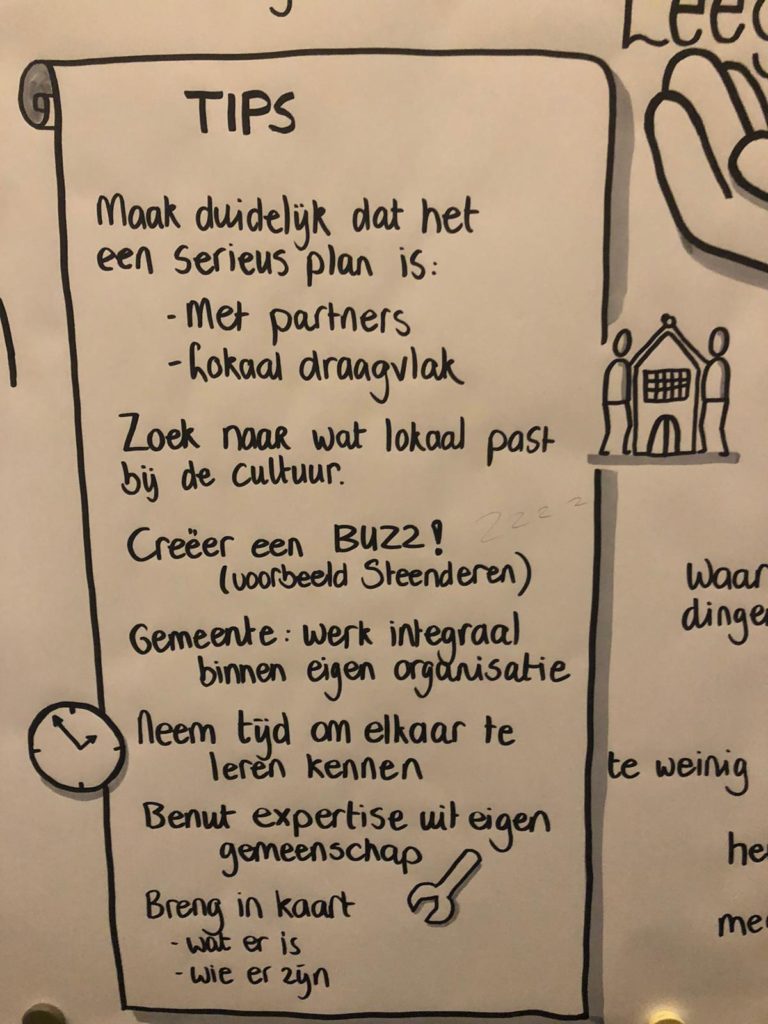 TIPS
Maak duidelijk dat het
een serieus plan is:
- Met partners
- Lokaal draagvlak
Zoek naar wat lokaal past
bij de cultuur.
Creëer een BUZZ!
zzzz
(voorbeeld Steenderen)
Gemeente: werk integraal
binnen eigen organisatie
Neem tijd om elkaar te
leren kennen
te weinig
Benut expertise uit eigen
gemeenschap
Breng in kaart
- wat er is
- wie er zijn